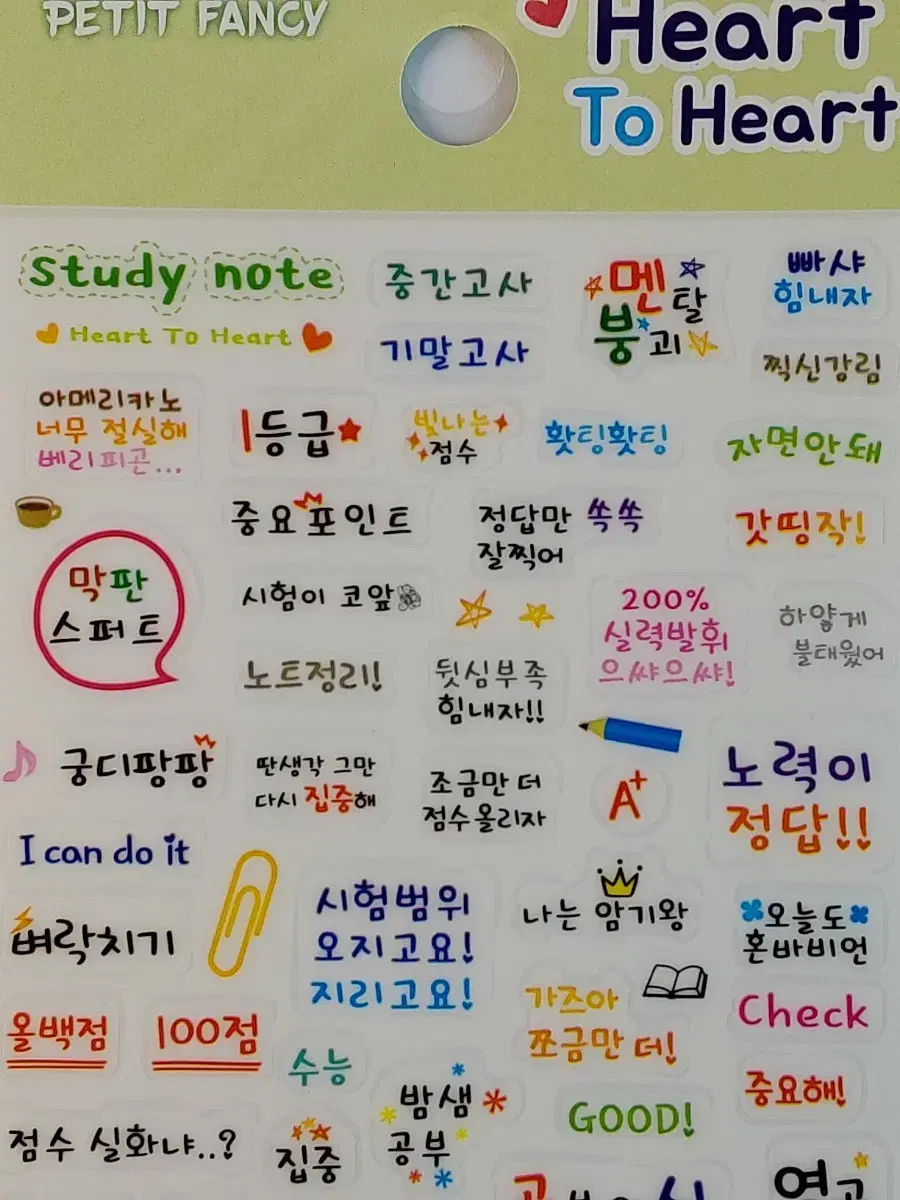 PETIT FANCY
Heart
To Heart
study note
Heart To Heart
중간고사
기말고사
멘탈
붕괴
빠샤
힘내자
찍신강림
아메리카노
너무 절실해
베리피곤...
1등급
빛나는
점수
홧팅홧팅
자면안돼
중요포인트
정답만 쏙쏙
잘찍어
갓띵작!
막판
스퍼트
시험이 코앞
200%
실력발휘
으쌰으쌰!
하얗게
불태웠어
노트정리!
뒷심부족
힘내자!!
궁디팡팡
딴생각 그만
다시 집중해
조금만 더
점수올리자
A+
노력이
정답!!
I can do it
벼락치기
시험범위
오지고요!
지리고요!
나는 암기왕
오늘도
혼바비언
가즈아
쪼금만 더!
Check
올백점
100점
수능
밤샘
공부
GOOD!
중요해!
점수 실화냐..?
집중